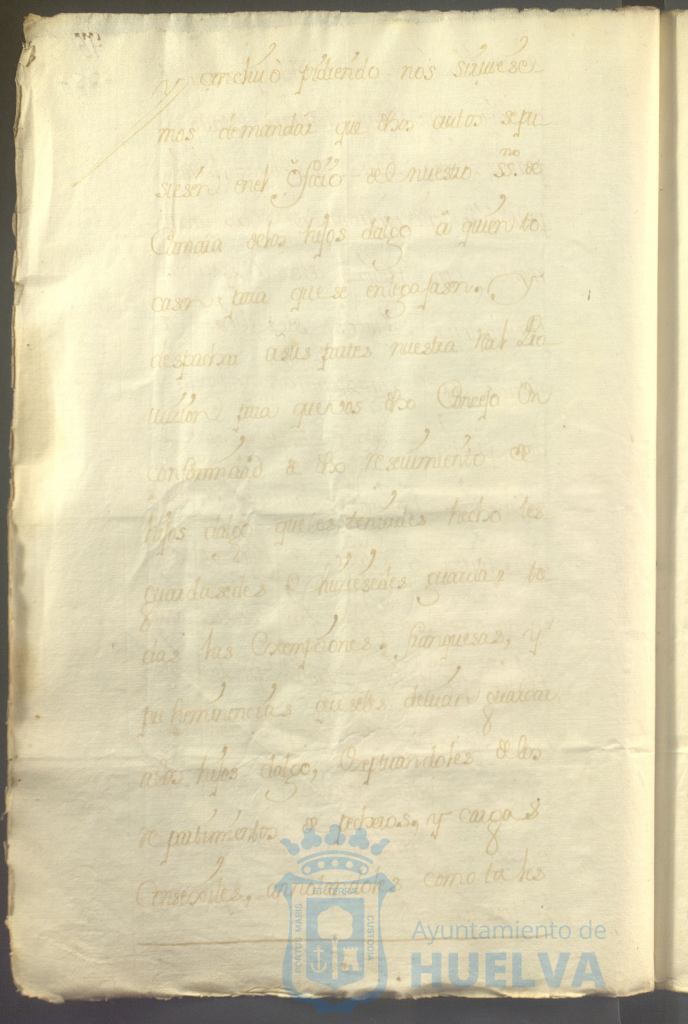 y archivo pidiendo nos sirviese
mos demandar que dhos autos sepu
siesen enel Ofiçio de nuestro ss.no de
Camara delos hijos dalgo â quien to
casen, para que se entregasen, Y
despachar a estas partes nuestra Real Pro
uision para que vos dho Conçejo en
conformidad de dho resciuimiento de
hijos dalgo que les teniades hecho les
guardasedes e hiciesedes guardar to
das las exempciones, franquesas, y
preheminencias que seles deuian guardar
a los hijos dalgo, de los
repartimientos de pecheros, y cargas
Consexiles, annotandoles como tales
PORTUS MARIS ET TERRAE CUSTODIA
Ayuntamiento de
HUELVA